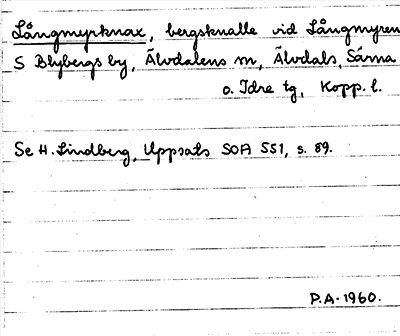 Långmyrknax, bergsknalle vid Långmyren
S Blybergs by, Älvdalens sn, Älvdals, Särna
o. Idre tg, Kopp. l.
Se H. Lindberg, Uppsats SOA 551, s. 89.
P.A. 1960.